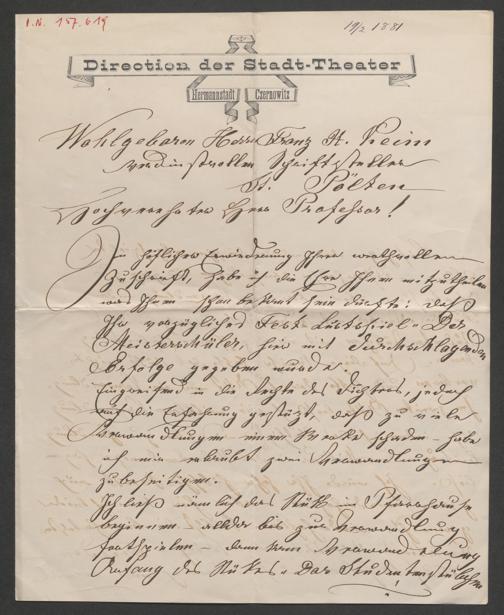 I.N. 157.619
19/2 1881
Direction der Stadt-Theater
Hermannstadt Czernowitz
Wohlgeboren Herr Franz A. Keim
verdienstvollen Schriftsteller
St. Pölten
Hochverehrter Herr Professor!
In höflicher Erwiderung Ihrer werthvollen
Zuschrift, habe ich die Ehre Ihnen mitzutheilen
was Ihnen schon bekant sein dürfte: daß
Ihr vorzügliches Fest-Lustspiel "Der
Meisterschüler" hier mit durchschlagenden
Erfolge gegeben wurde.
Eingreifend in die Rechte des Dichters, jedoch
auf die Erfahrung gestüzt, daß zu viele
Verwandlungen einem Werke schaden - habe
ich mir erlaubt zwei Verwandlungen
zu beseitigen.
Ich ließ nämlich das Stük im Pfarrhause
beginnen - alldar bis zur Verwandlung
fortspielen - dann kam Verwandlung
Anfang des Stükes "Das Studentenstübchen